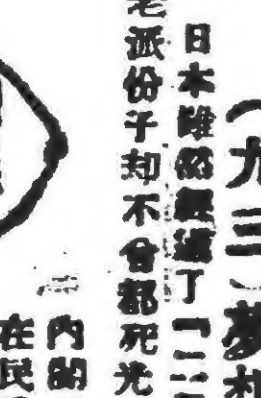 （九三、夢
日本雖然經過了「二二
老派份子却不會都死光
内閣
在民